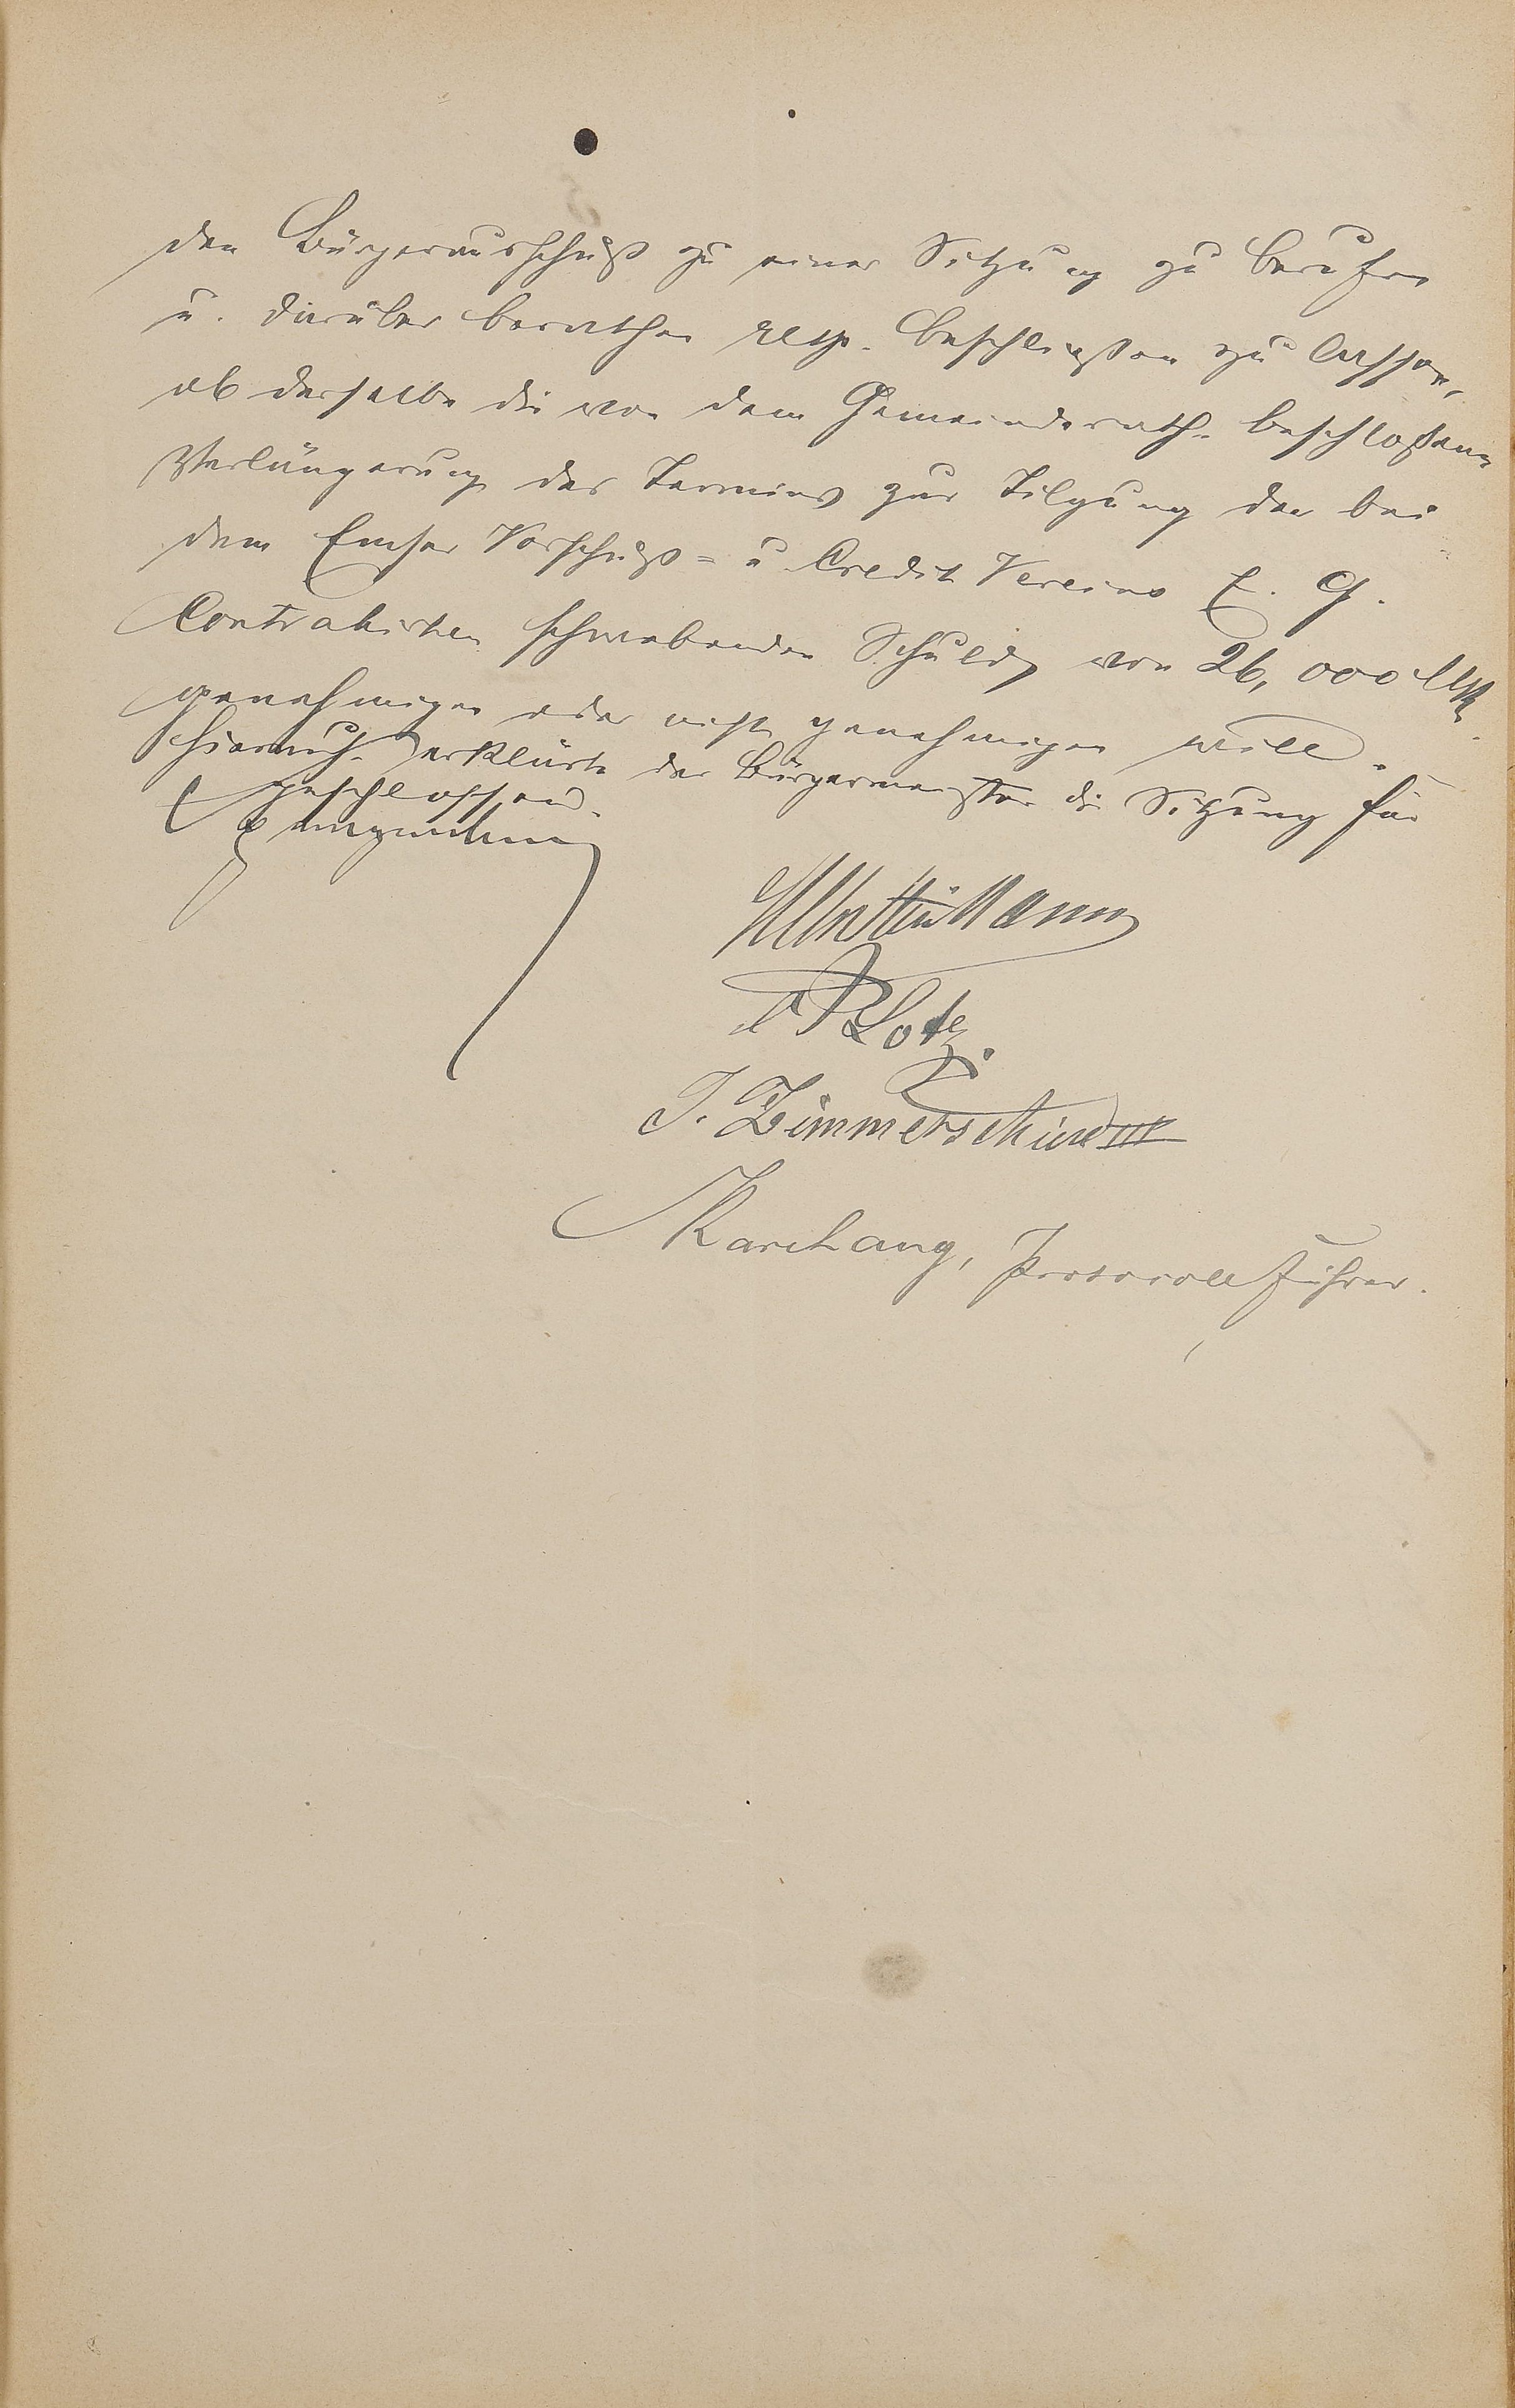 den Bürgerausschuß zu einer Sitzung zu berufen
u. darüber berathen resp. beschließen zu lassen,
ob derselbe die von dem Gemeinderath beschloßene
Verlängerung des Termins zur Tilgung der bei
dem Emser Vorschuß- u Credit Vereins E. G.
Contrahirten schwebenden Schuld von 26,000 Mk.
genehmigen oder nicht genehmigen will.
Hierauf erklärte der Bürgermeister die Sitzung für
geschlossen.
P Klotz.
J. Zimmerschied III
Marchang, Protocollführer.